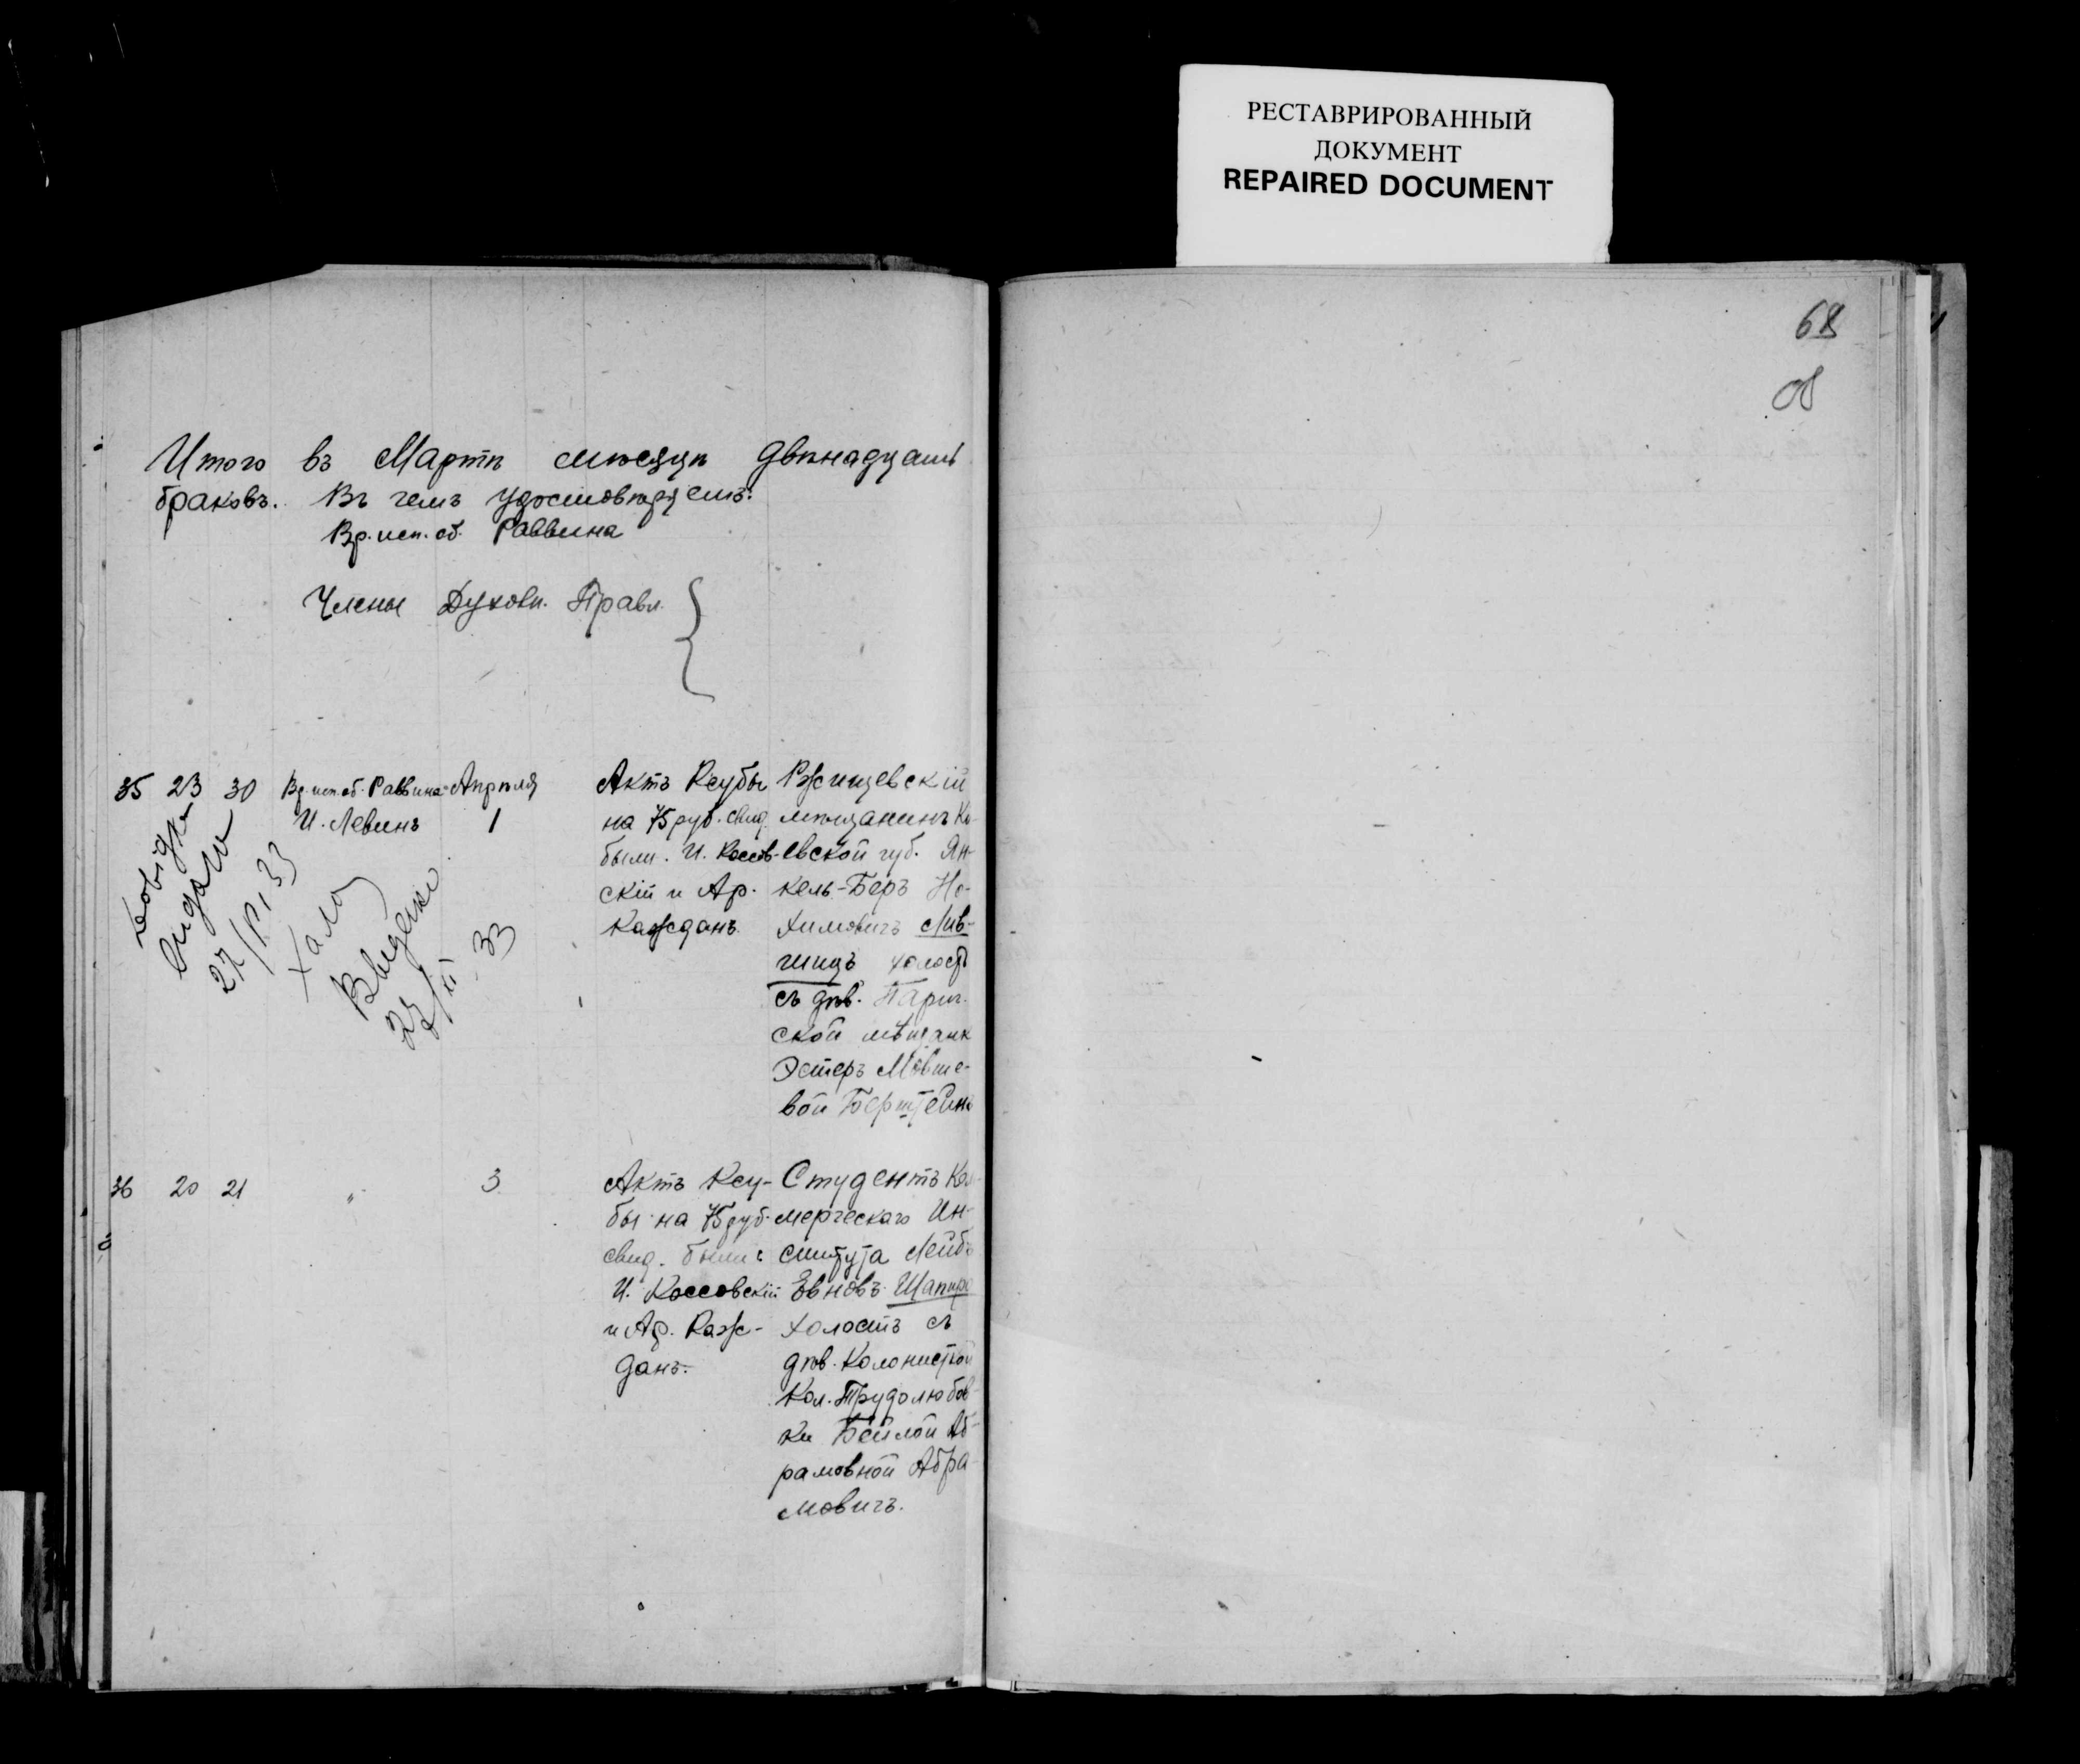 РЕСТАВРИРОВАННЫЙ
ДОКУМЕНТ
REPAIRED DOCUMENT
68
об
Итого въ Мартѣ мѣсяцѣ двѣнадцать
браковъ. Въ чемъ удостовѣряемъ:
Вр. исп. об. Раввина
Члены Духовн. Правл.
35 23 30 Вр. исп. об. Раввина Апрѣля
И. Левинъ 1
Актъ Ксубы
на 75 руб. свид.
были. И. Коссов-
скій и Ар.
Каждань.
Ржищевскій
мѣщанинъ Кі-
евской губ. Ян-
кель-Беръ Но-
химовичъ Лив-
шицъ холостъ
съ дѣв. Парич.
ской мѣщанк
Эстеръ Мовше-
вой Бернштейнъ
27/ 33
Введено
33
36 20 21 " 3
Актъ Ксу-
бы на 75 руб.
свид. были:
И. Коссовскій
и Ар. Каж-
данъ.
Студентъ Ком-
мерческаго Ин-
ститута Лейбъ
Евновъ Шапиро
холостъ съ
дѣв. Колонисткой
Кол. Трудолюбов-
ки Бейлой Аб-
рамовной Абра-
мовичъ.